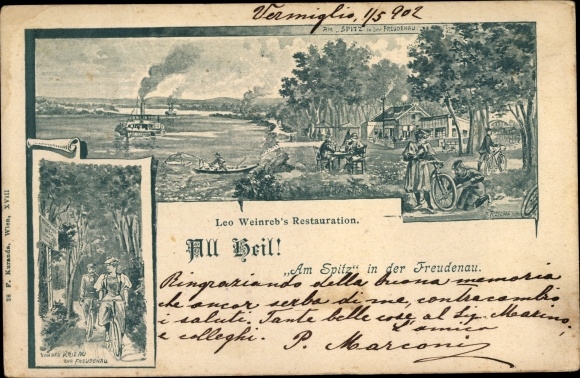 Vermiglio, 1/5 902
AM „SPITZ” IN DER FREUDENAU.
Leo Weinreb's Restauration.
All Heil!
„Am Spitz” in der Freudenau.
Ringraziando della buona memoria
che ancor serba di me, contracambio
i saluti. Tante belle cose al Sig. Marino,
e colleghi. L'amico
P. Marconi
VON DER KRIEAU
ZUR FREUDENAU
38 F. Kuranda, Wien, XVIII